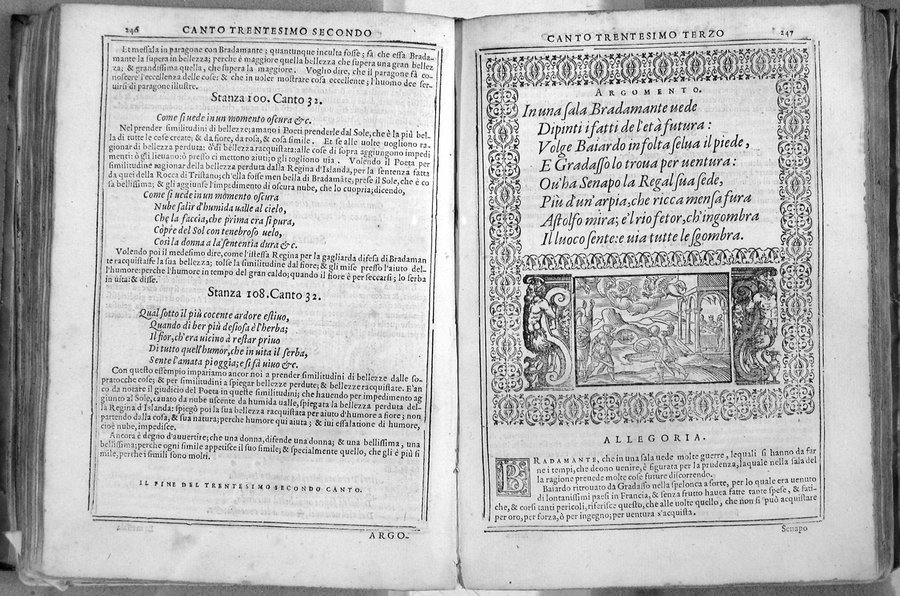 246
CANTO TRENTESIMO SECONDO
Et messala in paragone con Bradamante; quantunque inculta fosse; fà che essa Brada-
mante la supera in bellezza; perche è maggiore quella bellezza che supera una gran bellez
za, & grandissima quella, che supera la maggiore. Voglio dire, che il paragone fà co-
noscere l'eccellenza delle cose: & che in uoler mostrare cosa eccellente; l'huomo dee ser-
uirsi di paragone illustre.
Stanza 100. Canto 32.
Come si uede in un momento oscura &c.
Nel prender similitudini di bellezze; amano i Poeti prenderle dal Sole, che è la più bel-
la di tutte le cose create; & da fiore, da rosa, & cosa simile. Et se alle uolte uogliono ra-
gionar di bellezza perduta: ò di bellezza racquistata: alle cose di sopra aggiungono impedi
menti: ò gli lieuano: ò presso ci mettono aiuti; o gli togliono uia. Volendo il Poeta per
similitudine ragionar della bellezza perduta dalla Regina d'Islanda, per la sentenza fatta
da quei della Rocca di Tristano; ch'ella fosse men bella di Bradamãte, prese il Sole, che è co
sa bellissima; & gli aggiunse l'impedimento di oscura nube, che lo cuopria; dicendo,
Come si uede in un momento oscura
Nube salir d'humida ualle al cielo,
Che la faccia, che prima era sì pura,
Copre del Sol con tenebroso uelo,
Così la donna a la sententia dura &c.
Volendo poi il medesimo dire, come l'istessa Regina per la gagliarda difesa di Bradaman
te racquistasse la sua bellezza; tolse la similitudine dal fiore; & gli mise presso l'aiuto del-
l'humore: perche l'humore in tempo del gran caldo; quando il fiore è per seccarsi; lo serba
in uita: & disse.
Stanza 108. Canto 32.
Qual sotto il più cocente ardore estiuo,
Quando di ber più desiosa è l'herba;
Il fior, ch'era uicino à restar priuo
Di tutto quell'humor, che in uita il serba,
Sente l'amata pioggia; e si fà uiuo &c.
Con questo essempio impariamo ancor noi a prender similitudini di bellezze dalle so-
pratocche cose; & per similitudini a spiegar bellezze perdute; & bellezze racquistate. E'an
co da notare il giudicio del Poeta in queste similitudini; che hauendo per impedimento ag
giunto al Sole, cauato da nube uscente da humida ualle, spiegata la bellezza perduta del-
la Regina d'Islanda: spiegò poi la sua bellezza racquistata per aiuto d'humore a fiore; non
partendo dalla cosa, & sua natura; perche humore qui aiuta; & iui essalatione di humore,
cioè nube, impedisce.
Ancora è degno d'auuertire; che una donna, difende una donna; & una bellissima, una
bellissima; perche ogni simile appetisce il suo simile; & specialmente quello, che gli è più si
mile, perche i simili sono molti.
IL FINE DEL TRENTESIMO SECONDO CANTO.
ARGO-
CANTO TRENTESIMO TERZO
247
ARGOMENTO.
In una sala Bradamante uede
Dipinti i fatti de l'età futura:
Volge Baiardo in folta selua il piede,
E Gradasso lo troua per uentura:
Ou'ha Senapo la Regal sua sede,
Più d'un'arpia, che ricca mensa fura
Astolfo mira; e'l rio fetor, ch'ingombra
Il luoco sente: e uia tutte le sgombra.
ALLEGORIA.
BRADAMANTE, che in una sala uede molte guerre, lequali si hanno da far
ne i tempi, che deono uenire, è figurata per la prudenza, laquale nella sala del
la ragione preuede molte cose future discorrendo.
Baiardo ritrouato da Gradasso nella spelonca a sorte, per lo quale era uenuto
di lontanissimi paesi in Francia, & senza frutto hauea fatte tante spese, & fati-
che, & corsi tanti pericoli, riferisce questo, che alle uolte quello, che non si può acquistare
per oro, per forza, ò per ingegno; per uentura s'acquista.
Senapo